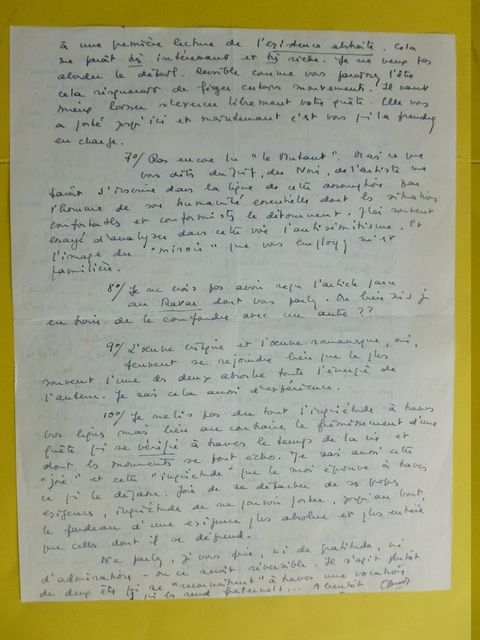 à une première lecture de l'existence abstraite. Cela
me paraît très intéressant et très riche. Je ne veux pas
aborder le détail. Sensible comme vous paraissez l'être
cela risquerait de figer certains mouvements. Il vaut
mieux laisser s'exercer librement votre quête. Elle vous
a porté jusqu'ici et maintenant c'est vous qui la prendrez
en charge.
7°/ Pas encore lu "le Mutant". Mais ce que
vous dites du Juif, du Noir, de l'artiste me
paraît s'inscrire dans la ligne de cette assomption par
l'homme de son humanité essentielle dont les situations
confortables et conformistes le détournent. J'ai souvent
essayé d'analyser dans cette voie l'antisémitisme. Et
l'image du "miroir" que vous employez m'est
familière.
8°/ Je ne crois pas avoir reçu l'article paru
au dont vous parlez. Ou bien suis-je
en train de le confondre avec un autre ??
9°/ L'oeuvre critique et l'oeuvre romanesque, oui,
peuvent se rejoindre bien que le plus
souvent l'une des deux absorbe toute l'énergie de
l'auteur. Je sais cela aussi d'expérience.
10°/ Je ne lis pas du tout l'inquiétude à travers
vos lignes mais bien au contraire le frémissement d'une
quête qui se vérifie à travers le temps de la vie et
dont les moments se font écho. Je sais aussi cette
"joie" et cette "inquiétude" que le moi éprouve à travers
ce qui le dépasse. Joie de se détacher de ses propres
exigences, inquiétude de ne pouvoir porter, jusqu'au bout,
le fardeau d'une exigence plus absolue et plus entière
que celles dont il se défend.
Ne parlez, je vous prie, ni de gratitude, ni
d'admiration - ou ce serait réversible. Il s'agit plutôt
de deux êtres qui se "reconnaissent" à travers une vocation
qui les rend fraternels... A bientôt